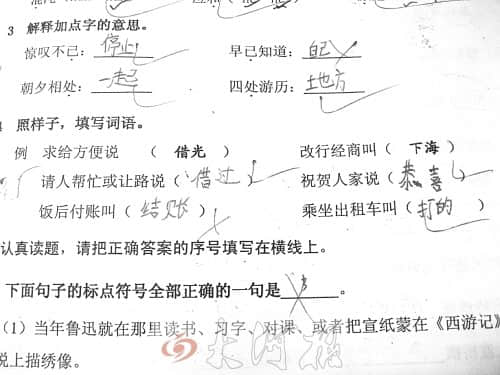 3 解释加点字的意思。
惊叹不已：停止 早已知道：自己
朝夕相处：一起 四处游历：地方
照样子，填写词语。
例 求给方便说（ 借光 ） 改行经商叫（ 下海 ）
请人帮忙或让路说（ 借过 ） 祝贺人家说（ 恭喜 ）
饭后付账叫（ 结账 ） 乘坐出租车叫（ 打的 ）
认真读题，请把正确答案的序号填写在横线上。
下面句子的标点符号全部正确的一句是 3 。
（1）当年鲁迅就在那里读书、习字、对课、或者把宣纸蒙在《西游记》
说上描绣像。
大河报